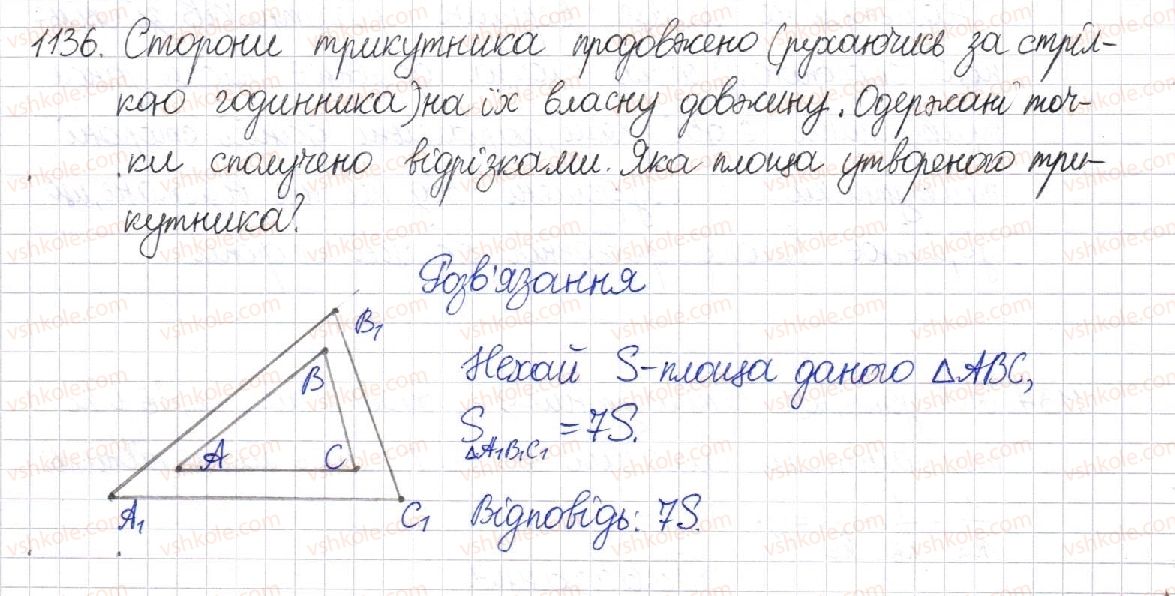 1136. Сторони трикутника продовжено (рухаючись за стріл-
кою годинника) на їх власну довжину. Одержані точ-
ки сполучено відрізками. Яка площа утвореного три-
кутника?
Розв'язання
Нехай S-площа даного △ABC,
S△A₁B₁C₁ = 7S.
Відповідь: 7S.
B₁
B
A
C
A₁
C₁
vshkole.com